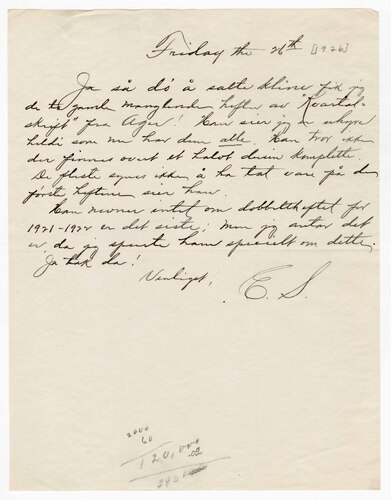 Friday the 26th [1926]
Ja så dó å satte kline fik jeg
de to gamle manglende hefter av "Kvartal-
skrift" fra Ager! Han sier jeg er uhyre
heldi som nu har dem alle. Han tror ikke
der finnes over et halvt dusin komplette.
De fleste synes ikke å ha tat vare på de
første heftene sier han.
Han nevner intet om dobbeltheftet for
1921-1922 er det siste; men jeg antar det
er da jeg spurte ham specielt om dette.
Ja tak da!
Venligst,
E. S.
2000
60
120,000
.02
2400